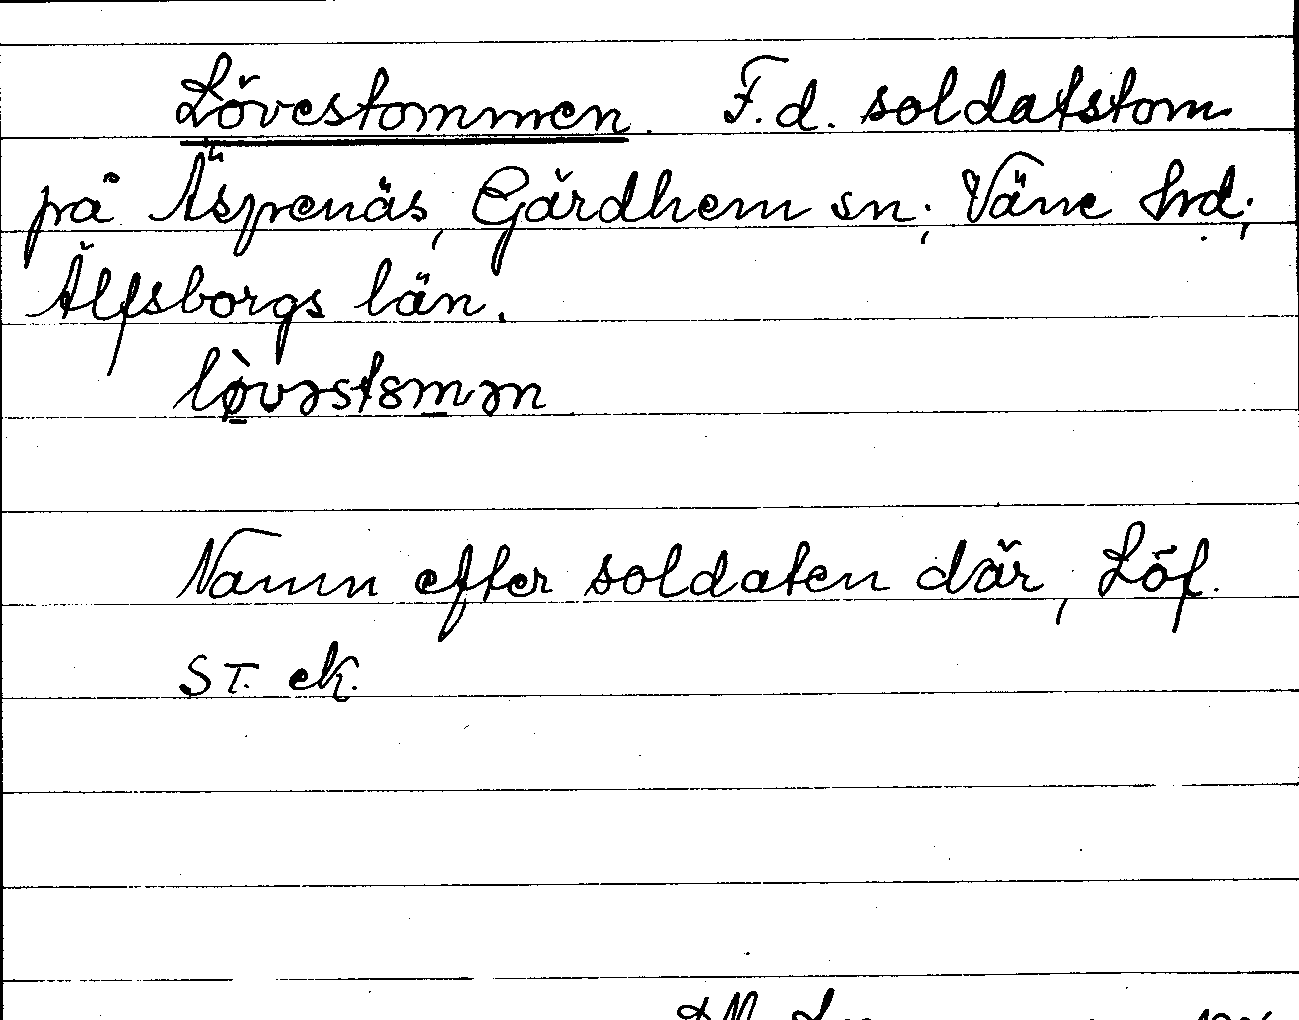 Lövestommen. F.d. soldatstom
på Äspenäs, Gärdhem sn; Väne hrd;
Älfsborgs län.
lø̀vəstəmən
Namn efter soldaten där, Löf.
ST. ek.